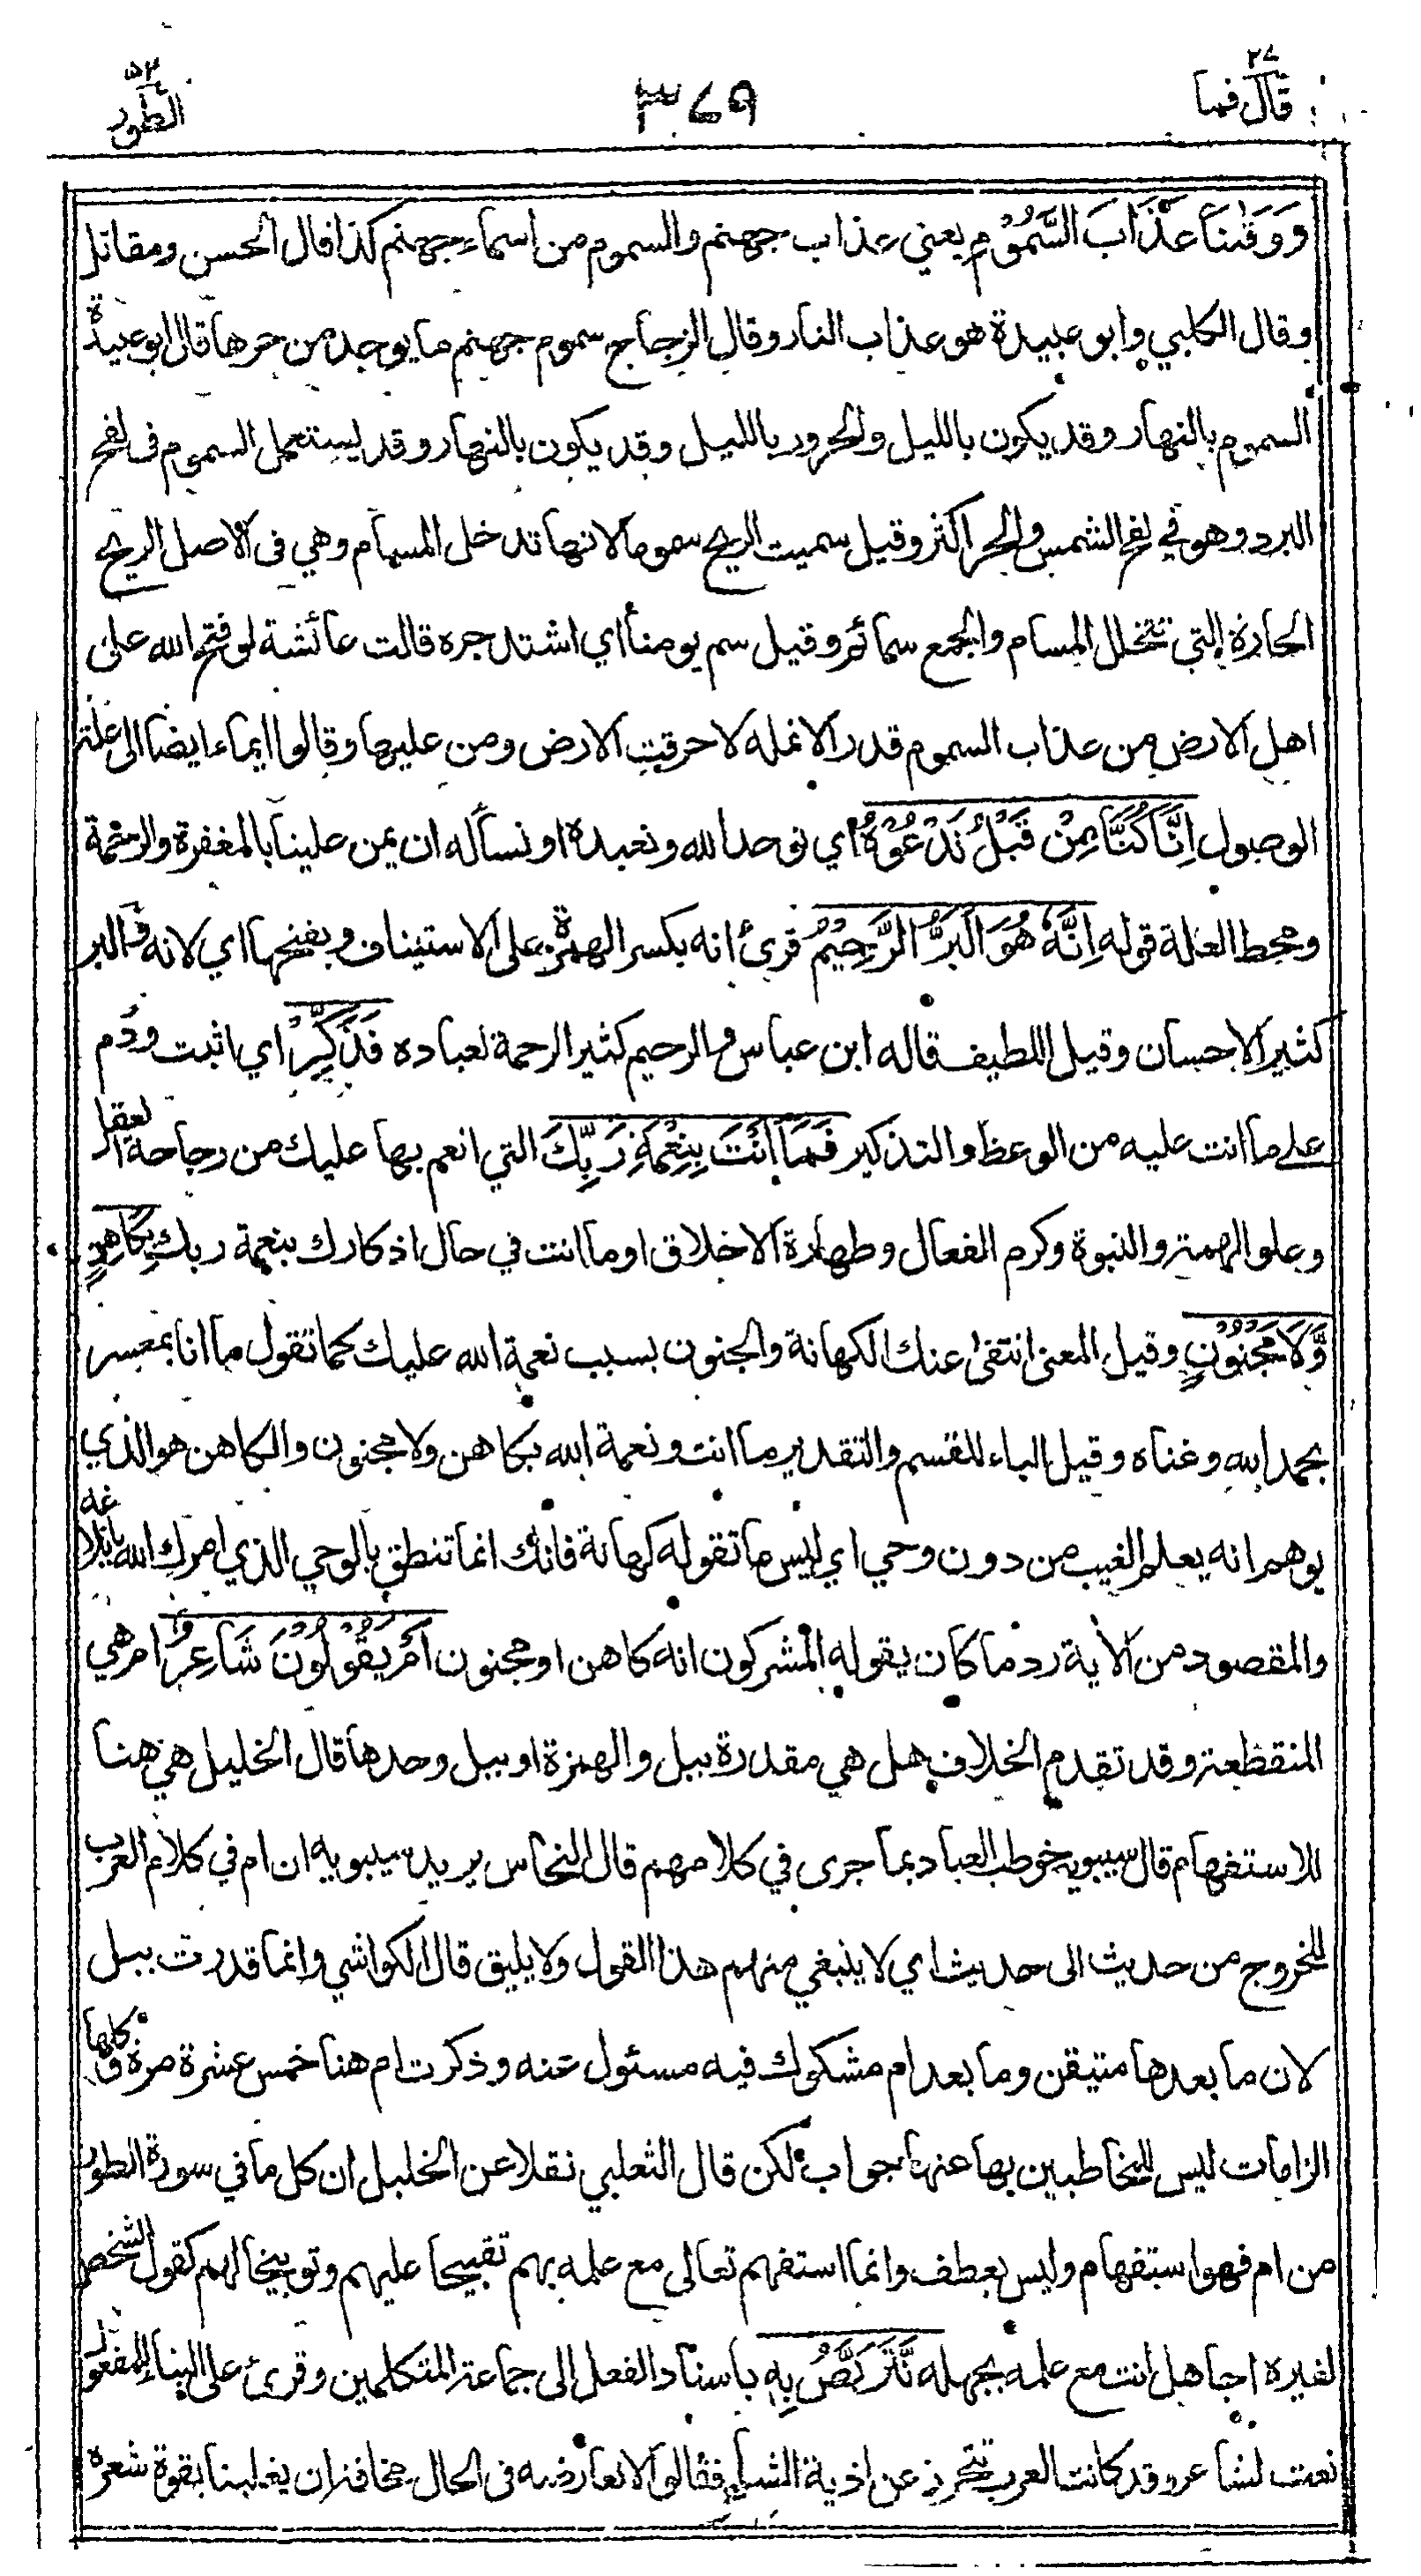 قال فما ٢٧
٣٧٩
الطور ٥٢
وَوَقٰىنَا عَذَابَ السَّمُوْمِ يعني عذاب جهنم والسموم من اسماء جهنم كذا قال الحسن ومقاتل
وقال الكلبي وابو عبيدة هو عذاب النار وقال الزجاج سموم جهنم ما يوجد من حرها قال ابو عبيدة
السموم بالنهار وقد يكون بالليل والحرور بالليل وقد يكون بالنهار وقد يستعمل السموم فى لفح
البرد وهو في لفح الشمس والحر اكثر وقيل سميت الريح سموما لانها تدخل المسام وهي فى الاصل الريح
الحارة التي تتخلل المسام والجمع سمائر وقيل سم يومنا اي اشتد حره قالت عائشة لو فتح الله على
اهل الارض من عذاب السموم قدر الانملة لاحرقت الارض ومن عليها وقالوا ايماء ايضا الى علة
الوصول اِنَّا كُنَّا مِنْ قَبْلُ نَدْعُوْهُ اي نوحد الله ونعبده او نسأله ان يمن علينا بالمغفرة والرحمة
ومحط العلة قوله اِنَّهٗ هُوَ الْبَرُّ الرَّحِيْمُ قرئ انه بكسر الهمزة على الاستيناف وبفتحها اي لانه والبر
كثير الاحسان وقيل اللطيف قاله ابن عباس والرحيم كثير الرحمة لعباده فَذَكِّرْ اي اثبت ودم
على ما انت عليه من الوعظ والتذكير فَمَآ اَنْتَ بِنِعْمَةِ رَبِّكَ التي انعم بها عليك من رجاحة العقل
وعلو الهمة والنبوة وكرم الفعال وطهارة الاخلاق او ما انت في حال اذكارك بنعمة ربك بِكَاهِنٍ
وَّلَا مَجْنُوْنٍ وقيل المعنى انتفى عنك الكهانة والجنون بسبب نعمة الله عليك كما تقول ما انا بمعسر
بحمد الله وغناه وقيل الباء للقسم والتقدير ما انت ونعمة الله بكاهن ولا مجنون والكاهن هو الذي
يوهم انه يعلم الغيب من دون وحي اي ليس ما تقوله كهانة فانك انما تنطق بالوحي الذي امرك الله بابلاغه
والمقصود من الآية رد ما كان يقوله المشركون انه كاهن او مجنون اَمْ يَقُوْلُوْنَ شَاعِرٌ ام هي
المنقطعة وقد تقدم الخلاف هل هي مقدرة ببل والهمزة او ببل وحدها قال الخليل هي هنا
للاستفهام قال سيبويه خوطب العباد بما جرى في كلامهم قال النحاس يريد سيبويه ان ام في كلام العرب
للخروج من حديث الى حديث اي لا ينبغي منهم هذا القول ولا يليق قال الكواشي وانما قدرت ببل
لان ما بعدها متيقن وما بعد ام مشكوك فيه مسئول عنه وذكرت ام هنا خمس عشرة مرة وكلها
الزامات ليس للمخاطبين بها عنها جواب لكن قال الثعلبي نقلا عن الخليل ان كل ما في سورة الطور
من ام فهو استفهام وليس بعطف وانما استفهم تعالى مع علمه بهم تقبيحا عليهم وتوبيخا لهم كقول الشخص
لغيره اجاهل انت مع علمه بجهله نَّتَرَبَّصُ بِهٖ باسناد الفعل الى جماعة المتكلمين وقرئ على البناء للمفعول
نعت لشاعر وقد كانت العرب تتحرز عن اذية الشاعر فقالوا لا نعارضه فى الحال مخافة ان يغلبنا بقوة شعره